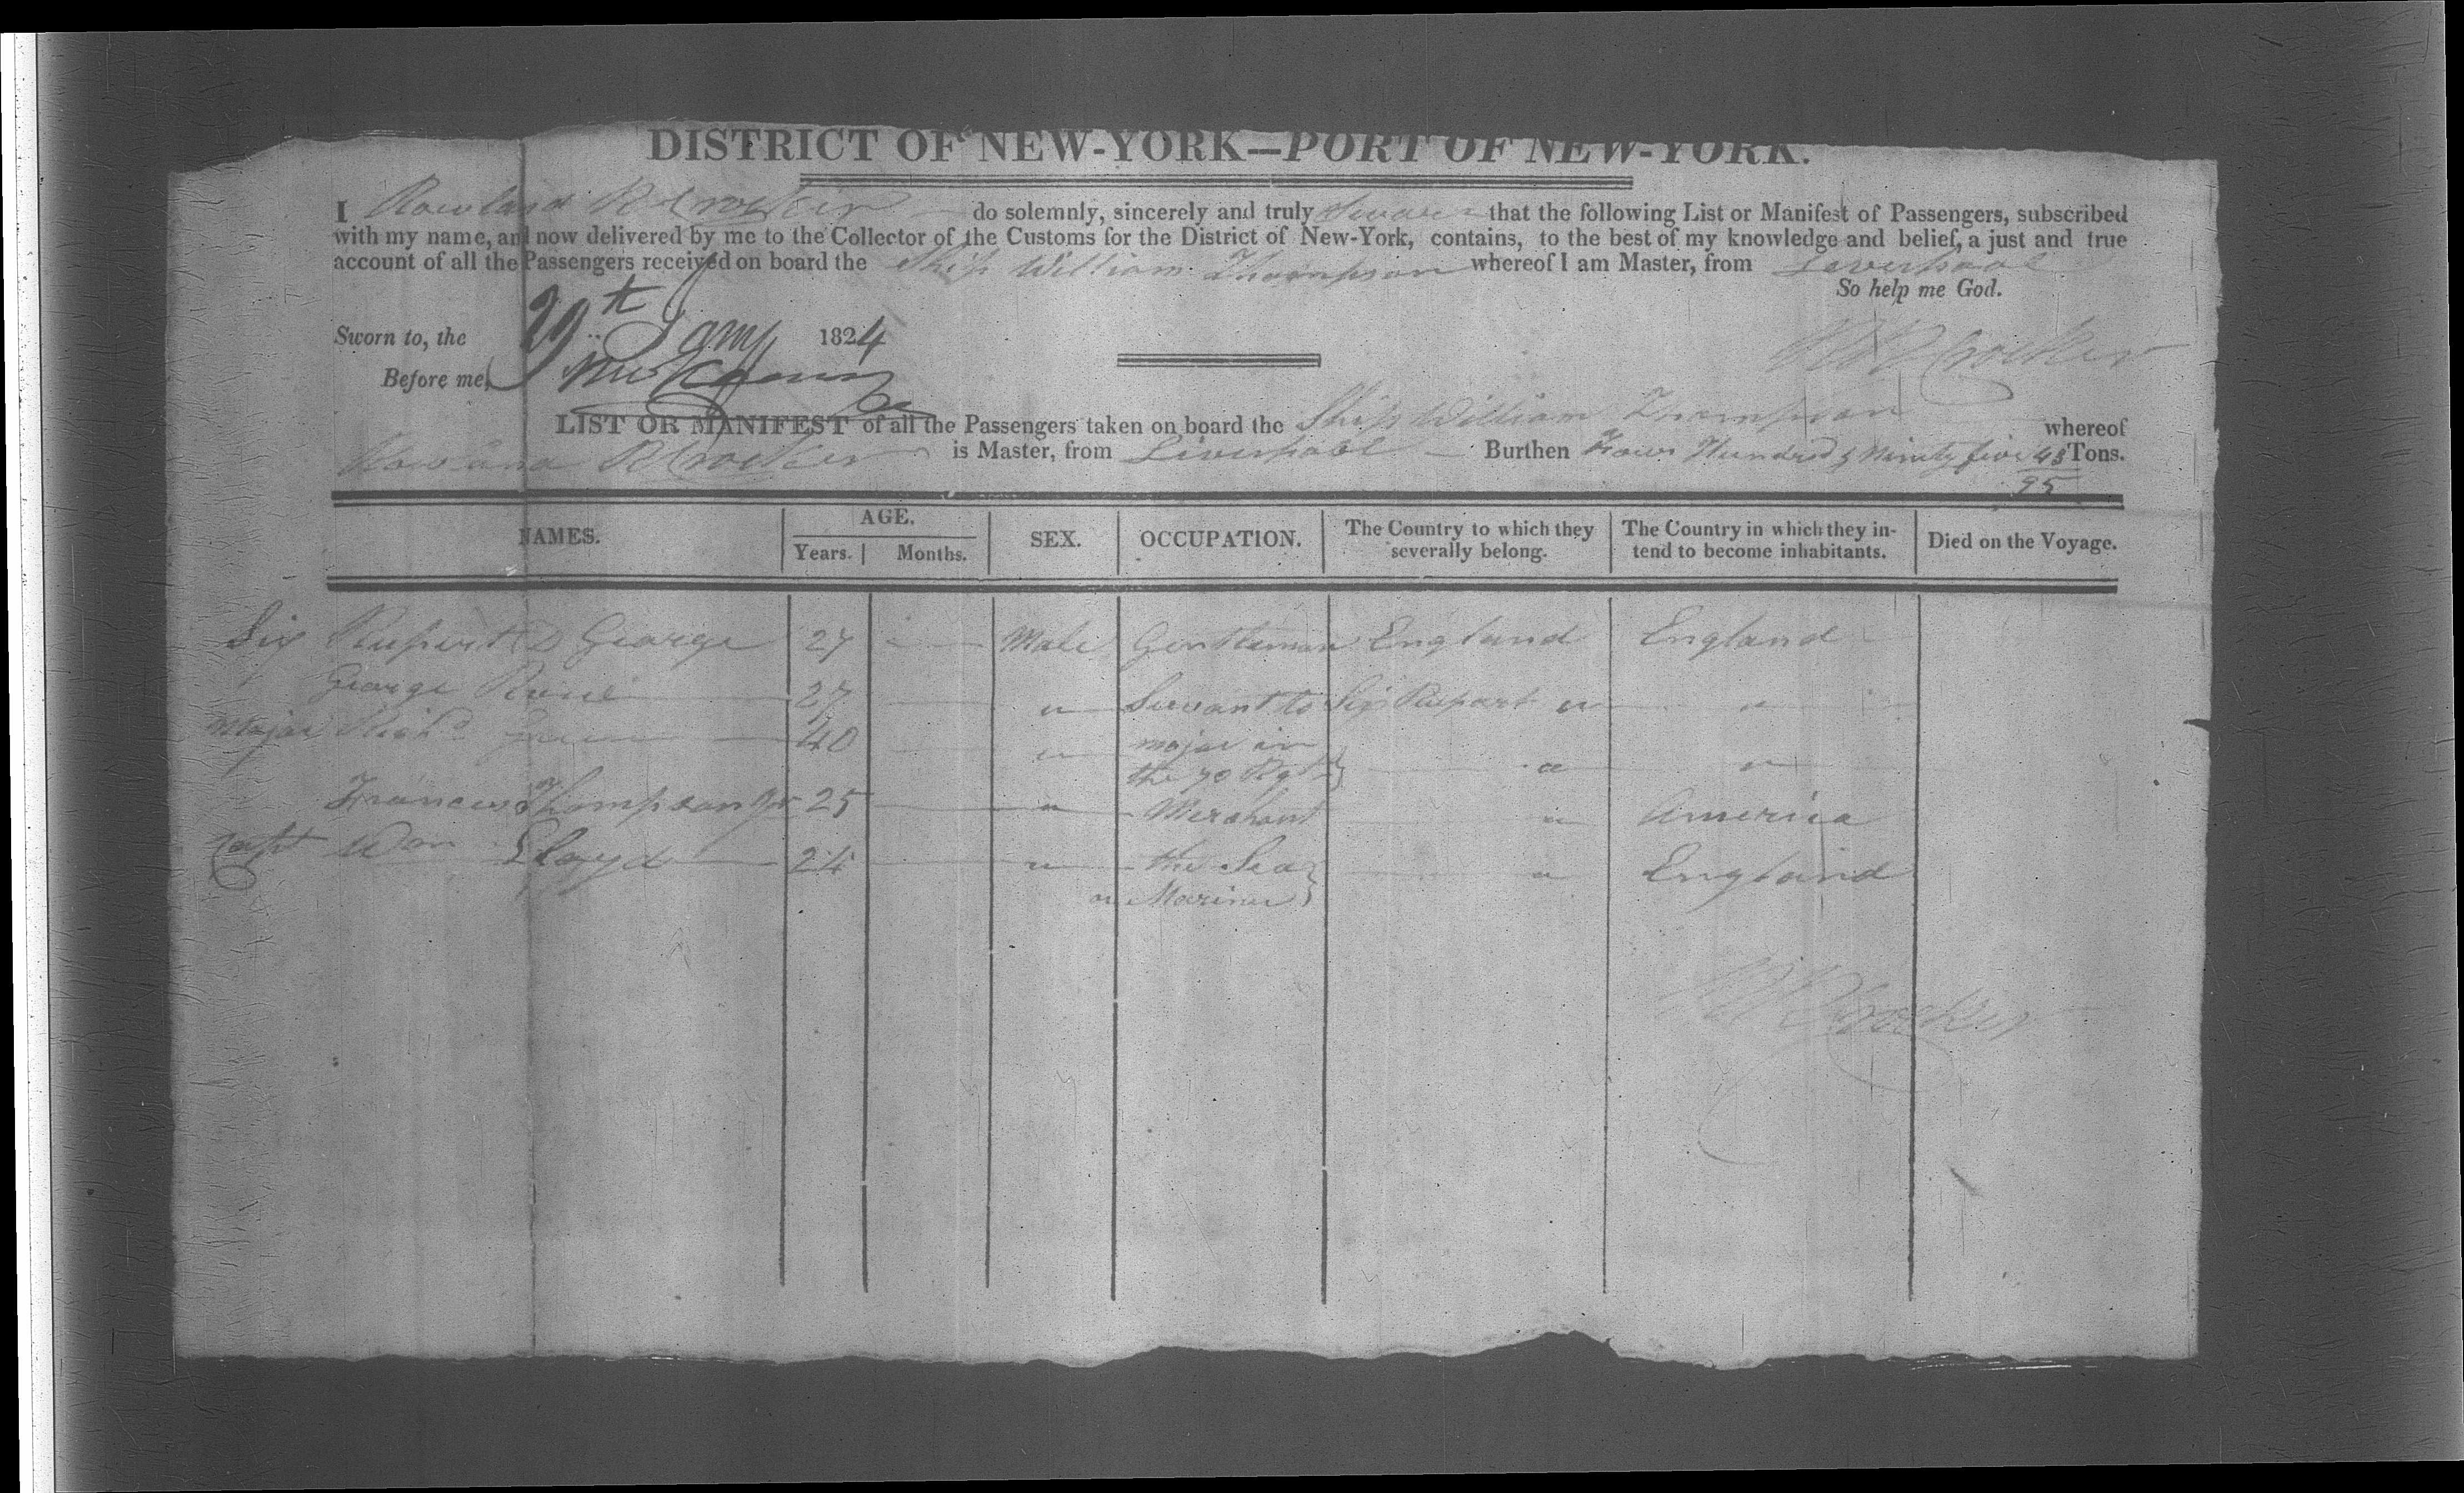 DISTRICT OF NEW-YORK—PORT OF NEW-YORK.
I Rowland R Crocker do solemnly, sincerely and truly swear that the following List or Manifest of Passengers, subscribed
with my name, and now delivered by me to the Collector of the Customs for the District of New-York, contains, to the best of my knowledge and belief, a just and true
account of all the Passengers received on board the Ship William Thompson whereof I am Master, from Liverpool
So help me God.
Sworn to, the 29th Jany 1824
Before me,
R R Crocker
LIST OR MANIFEST of all the Passengers taken on board the Ship William Thompson whereof
Rowland R Crocker is Master, from Liverpool Burthen Four Hundred & Ninety five 43/95 Tons.
NAMES. AGE. SEX. OCCUPATION. The Country to which they severally belong. The Country in which they intend to become inhabitants. Died on the Voyage.
Years. Months.
Sir Rupert D George 27 Male Gentleman England England
George 27 " Servant to Sir Rupert " "
Major Richd 40 " major in
the 70 Rgt } " "
Francis Thompson Jr 25 " Merchant " America
Capt Wm Lloyd 24 " the Sea } " England
or Mariner
R R Crocker